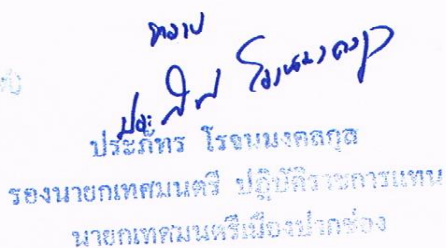 ทราบ
ประภัทร โรจนมงคลกุล
รองนายกเทศมนตรี ปฏิบัติราชการแทน
นายกเทศมนตรีเมืองปากช่อง